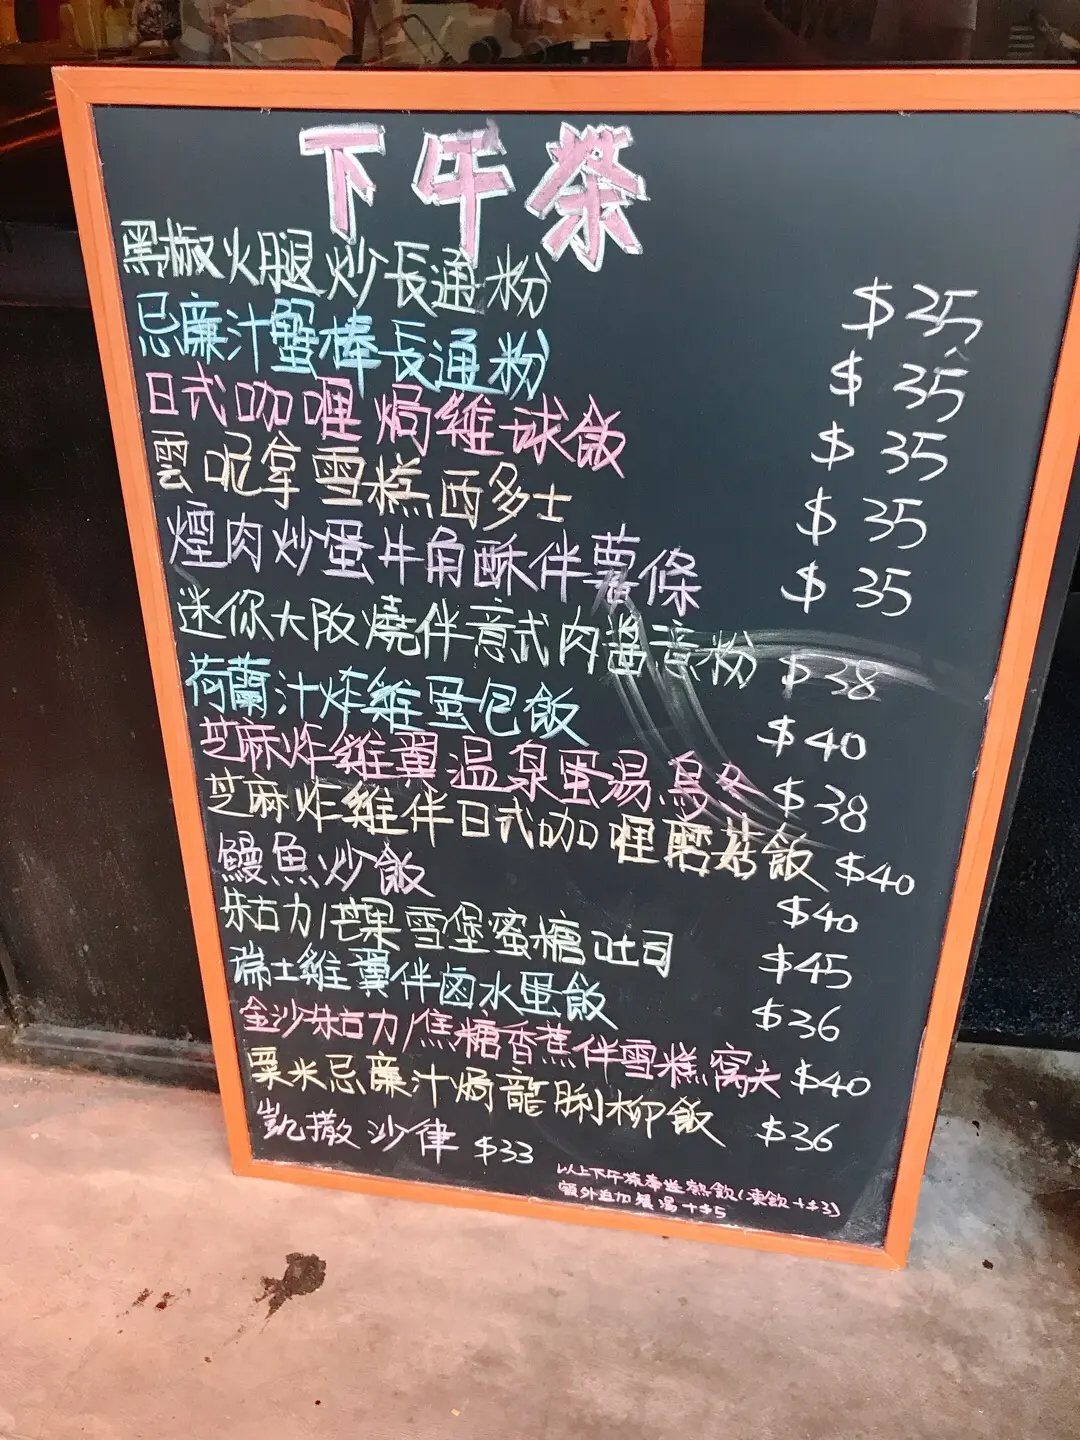 下午茶
黑椒火腿炒長通粉 $35
忌廉汁蟹棒長通粉 $35
日式咖喱焗雞球飯 $35
雲呢拿雪糕西多士 $35
煙肉炒蛋牛角酥伴薯條 $35
迷你大阪燒伴意式肉醬意粉 $38
荷蘭汁炸雞蛋包飯 $40
芝麻炸雞翼温泉蛋湯烏冬 $38
芝麻炸雞伴日式咖喱磨菇飯 $40
鰻魚炒飯 $40
朱古力/芒果雪堡蜜糖吐司 $45
瑞士雞翼伴鹵水蛋飯 $36
金沙朱古力/焦糖香蕉伴雪糕窩夫 $40
粟米忌廉汁焗龍脷柳飯 $36
凱撒沙律 $33
以上下午茶奉送熱飲(凍飲+$3)
額外追加餐湯+$5